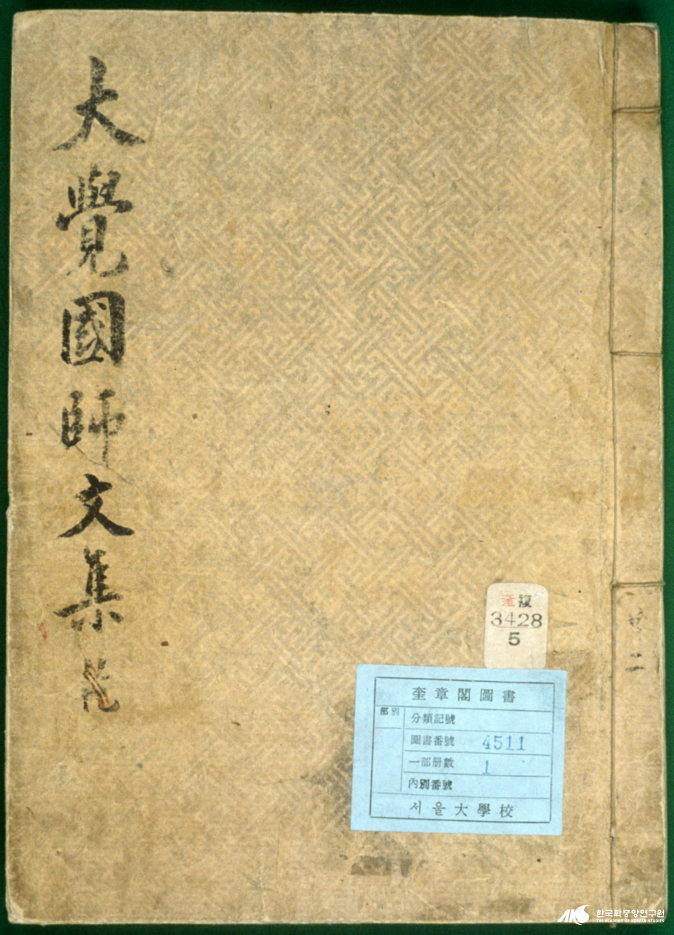 大覺國師文集
奎 複
3428
5
奎章閣圖書
部別
分類記號
圖書番號 4511
一部冊數 1
內別番號
서울大學校
二
한국학중앙연구원
THE ACADEMY OF KOREAN STUDIES